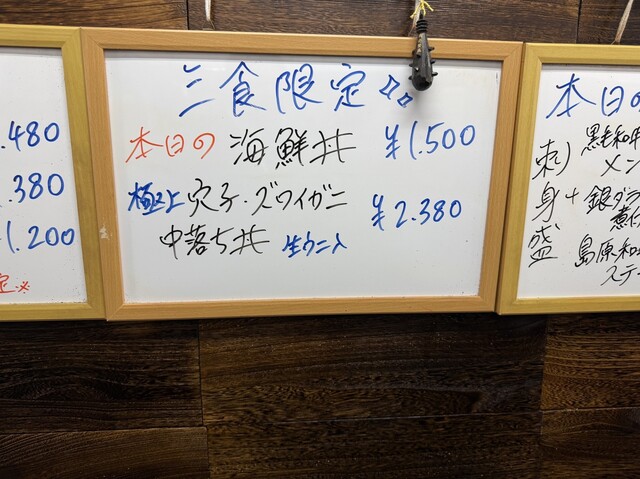 .480
.380
1.200
定※
三食限定
本日の 海鮮丼 ¥1.500
極上 穴子・ズワイガニ ¥2.380
中落ち丼 生ウニ入
本日の
刺身盛
黒毛和牛
メン
+銀ダラ
煮
島原和
ステー